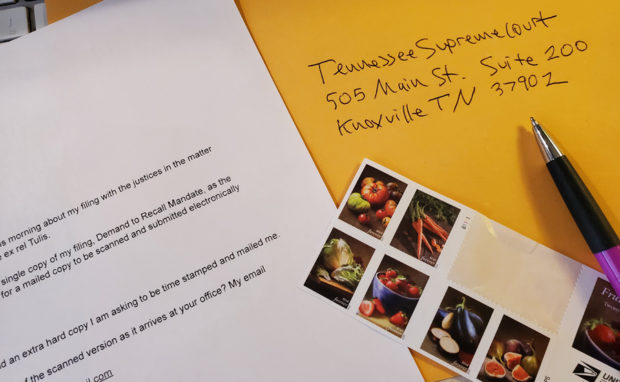 Tennessee Supreme Court
505 Main St. Suite 200
Knoxville TN 37902
s morning about my filing with the justices in the matter
ex rel Tulis.
single copy of my filing, Demand to Recall Mandate, as the
for a mailed copy to be scanned and submitted electronically
d an extra hard copy I am asking to be time stamped and mailed me.
of the scanned version as it arrives at your office? My email
il.com